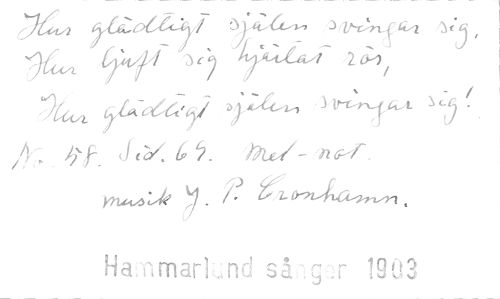 Hur glädtigt själen svingar sig,
Hur ljuft sig hjärtat rör,
Hur glädtigt själen svingar sig!
No. 58. Sid. 69. Mel-not.
musik J. P. Cronhamn.
Hammarlund sånger 1903